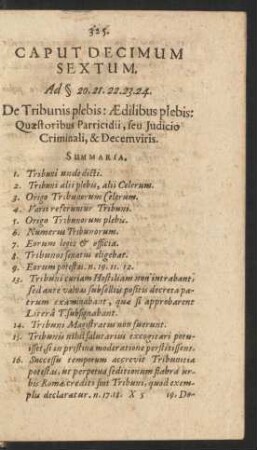 325.
CAPUT DECIMUM
SEXTUM.
Ad § 20. 21. 22. 23. 24.
De Tribunis plebis: Ædilibus plebis:
Quæstoribus Parricidii, seu Judicio
Criminali, & Decemviris.
SUMMARIA.
1. Tribuni unde dicti.
2. Tribuni alii plebis, alii Celerum.
3. Origo Tribunorum Celerum.
4. Varii referuntur Tribuni.
5. Origo Tribunorum plebis.
6. Numerus Tribunorum.
7. Eorum lex & officia.
8. Tribunus senatui eligebat.
9. Eorum potestas. n. 10. 11. 12.
13. Tribuni curiam Hostiliam non intrabant,
sed ante valvas subselliis positis decreta pa-
trum examinabant, quæ si approbarent
Literâ T. subsignabant.
14. Tribuni Magistratus non fuerunt.
15. Tribunis nihil salutarius excogitari potu-
isset, si in pristina moderatione perstitissent.
16. Successu temporum accrevit Tribunitia
potestas, ut perpetua seditionum flabra ur-
bis Romæ crediti sint Tribuni, quod exem-
plis declaratur. n. 17. 18. X 5 19. Do-